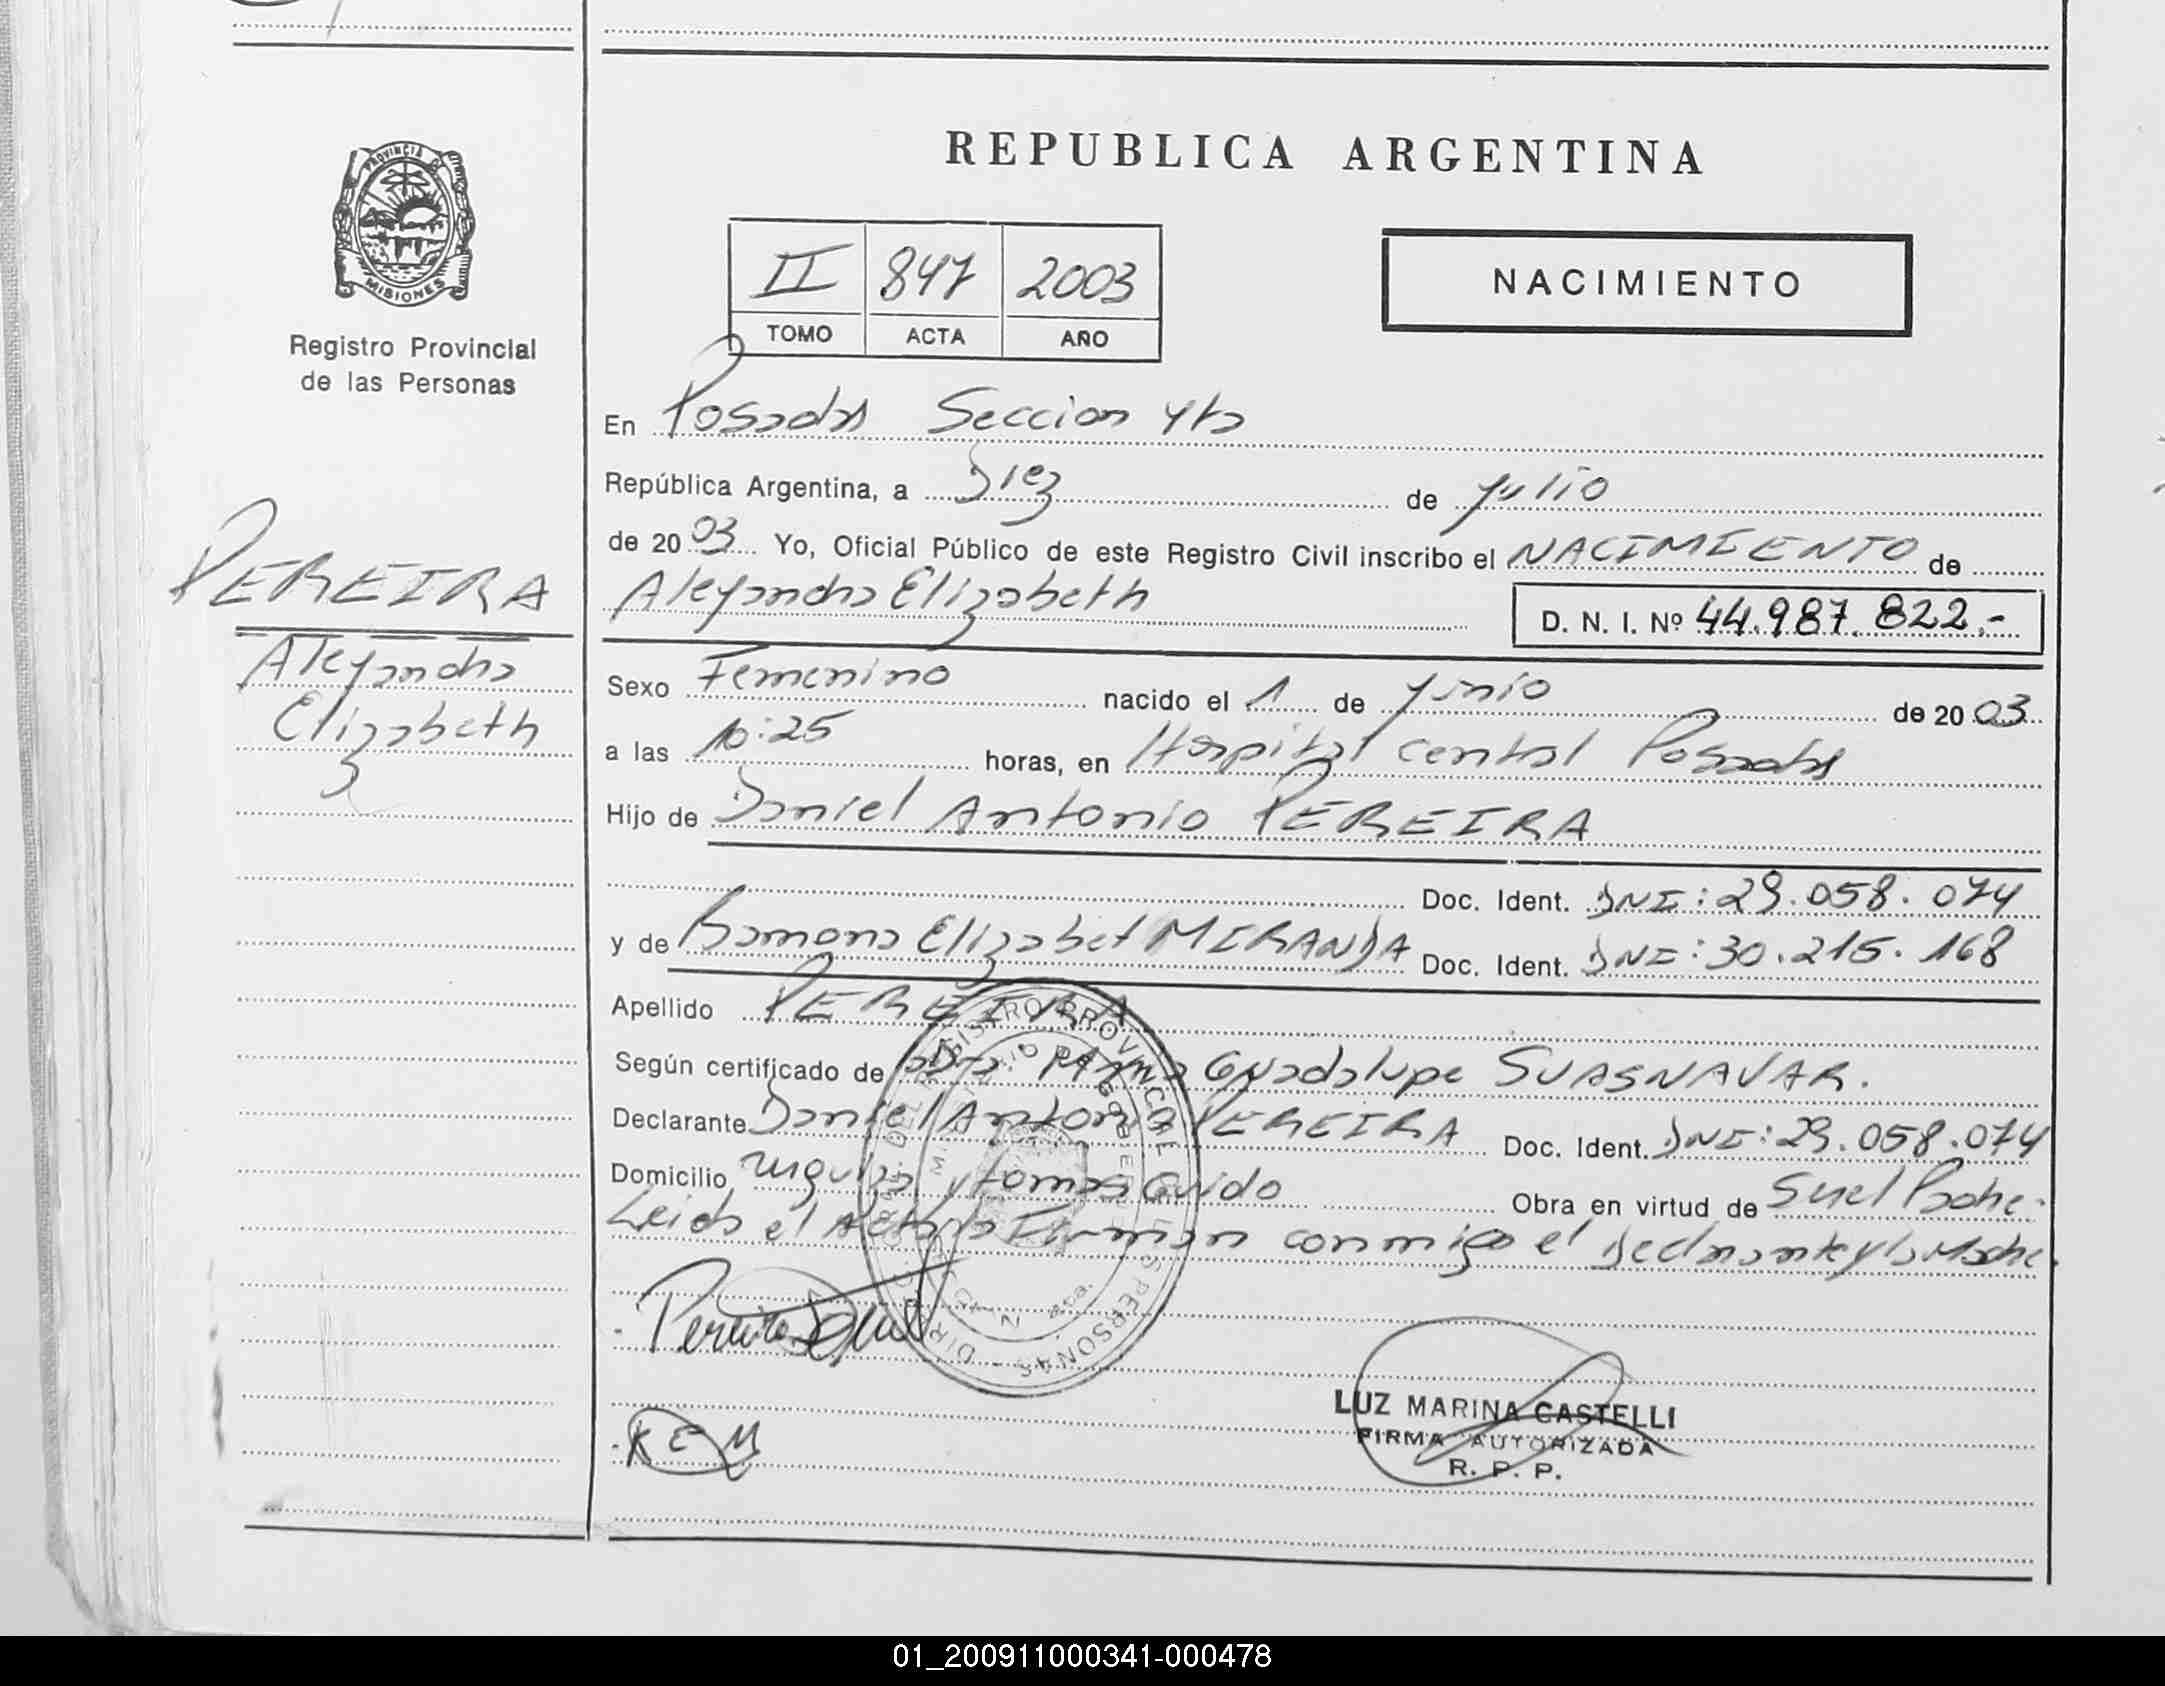 REPUBLICA ARGENTINA
PROVINCIA DE
MISIONES
Registro Provincial
de las Personas
II 847 2003
TOMO ACTA AÑO
NACIMIENTO
En Posadas Seccion 4ta
República Argentina, a Diez de Julio
de 2003 Yo, Oficial Público de este Registro Civil inscribo el NACIMIENTO de
Alejandra Elizabeth D. N. I. Nº 44.987.822.-
PEREIRA
Alejandra
Elizabeth
Sexo Femenino nacido el 1 de Junio de 2003
a las 10:25 horas, en Hospital Central Posadas
Hijo de Daniel Antonio PEREIRA
Doc. Ident. DNI: 29.058.074
y de Ramona Elizabet MIRANDA Doc. Ident. DNI: 30.215.168
Apellido PEREIRA
Según certificado de Dra. Guadalupe SUASNAVAR.
Declarante Daniel Antonio PEREIRA Doc. Ident. DNI: 29.058.074
Domicilio Urquiza y Tomas Guido Obra en virtud de Ser el Padre.
Leida el Acta la Firman conmigo el Declarante y la Madre.
Pereira Daniel
R E M
LUZ MARINA CASTELLI
FIRMA AUTORIZADA
R. P. P.
01_200911000341-000478